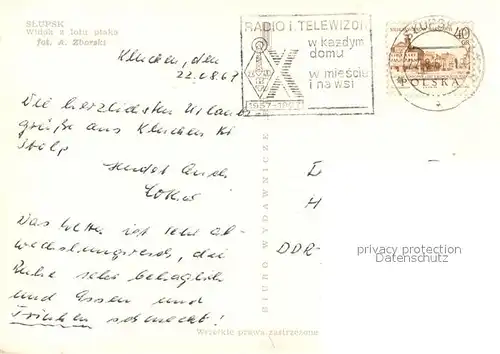 SŁUPSK
Widok z lotu ptaka
fot. A. Zborski
RADIO i TELEWIZOR
w każdym
domu
w mieście
i na wsi
X
SŁUPSK
40
POLSKA
den
22.8.67
Die herzlichsten Urlaubs-
grüße aus
Stolp
sendet Euch
Das Wetter ist sehr ab-
wechslungsreich, die
Ruhe sehr behaglich
und Essen und
Trinken schmeckt!
BIURO WYDAWNICZE
DDR-
privacy protection
www.ansichtskartenversand.com
Wszelkie prawa zastrzeżone